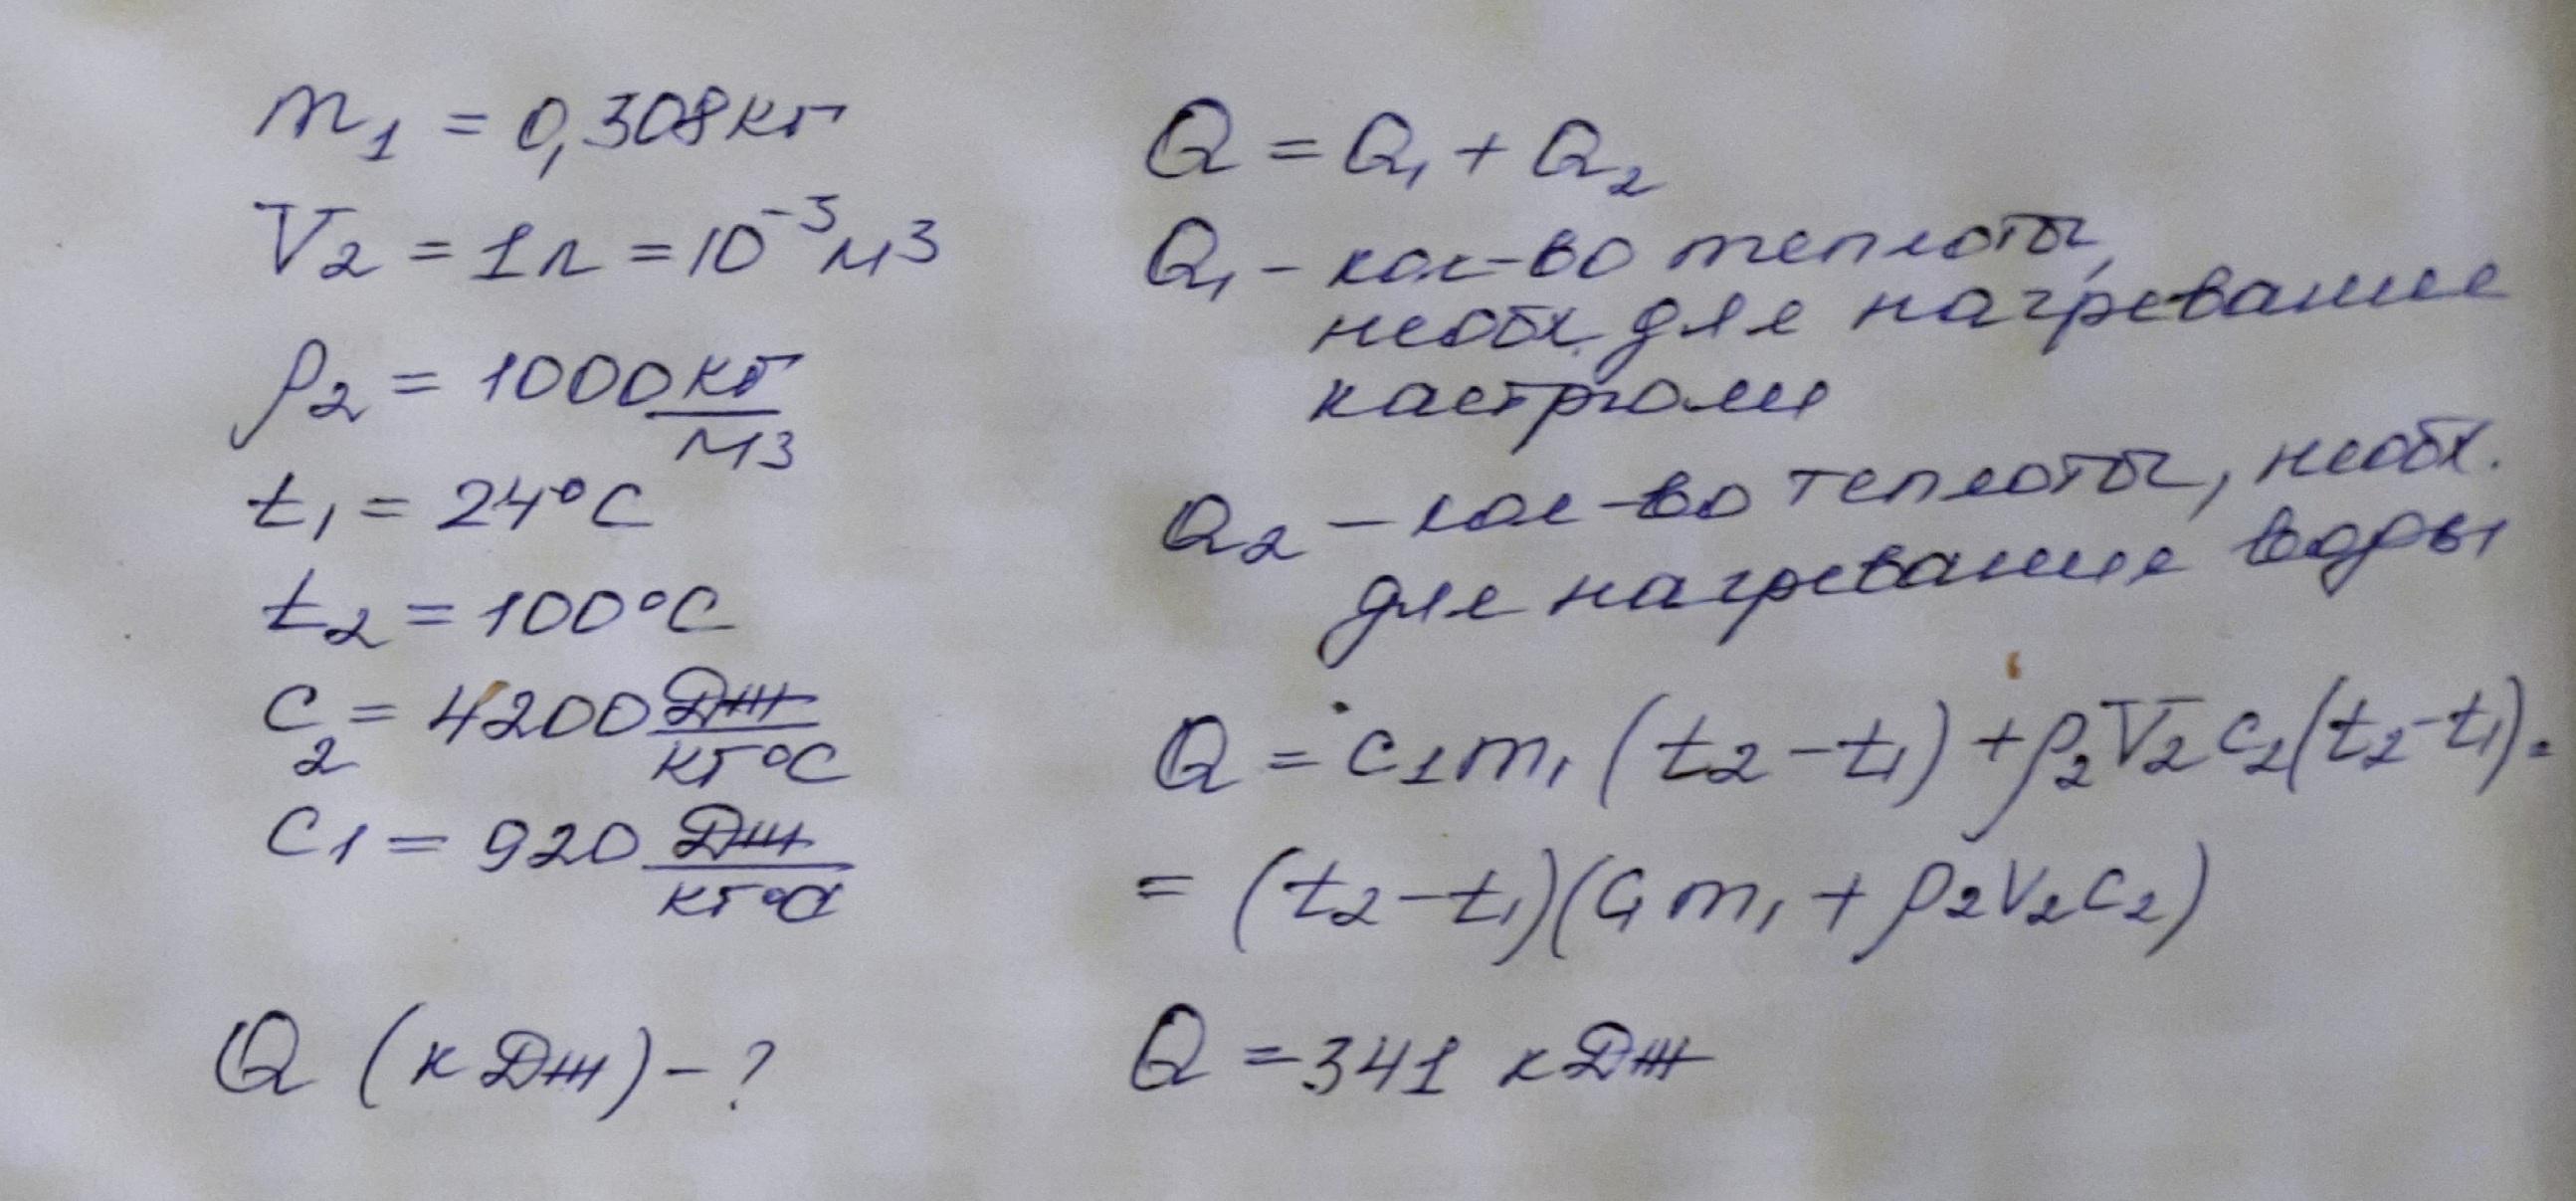 m₁ = 0,308кг
V₂ = 1л = 10⁻³м3
ρ₂ = 1000 кг/м3
t₁ = 24°C
t₂ = 100°C
c₂ = 4200 Дж/кг°C
c₁ = 920 Дж/кг°C
Q (кДж) - ?
Q = Q₁ + Q₂
Q₁ - кол-во теплоты,
необх. для нагревания
кастрюли
Q₂ - кол-во теплоты, необх.
для нагревания воды
Q = c₁m₁ (t₂ - t₁) + ρ₂V₂c₂(t₂ - t₁) =
= (t₂ - t₁)(c₁m₁ + ρ₂V₂c₂)
Q = 341 кДж